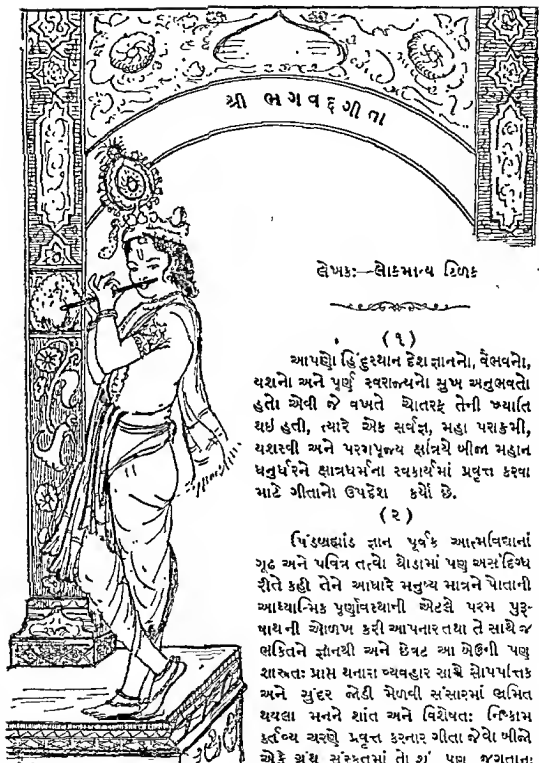 શ્રી ભગવદ્ગીતા
લેખકઃ—લોકમાન્ય ટિળક
(૧)
આપણો હિંદુસ્થાન દેશ જ્ઞાનનો, વૈભવનો,
યશનો અને પૂર્ણ સ્વરાજ્યનો સુખ અનુભવતો
હતો એવી જે વખતે ચોતરફ તેની ખ્યાતિ
થઇ હતી, ત્યારે એક સર્વજ્ઞ, મહા પરાક્રમી,
યશસ્વી અને પરમપૂજ્ય ક્ષત્રિયે બીજા મહાન
ધનુર્ધરને ક્ષાત્રધર્મના સ્વકાર્યમાં પ્રવૃત્ત કરવા
માટે ગીતાનો ઉપદેશ કર્યો છે.
(૨)
પિંડબ્રહ્માંડ જ્ઞાન પૂર્વક આત્મવિદ્યાનાં
ગૂઢ અને પવિત્ર તત્વો થોડામાં પણ અસંદિગ્ધ
રીતે કહી તેને આધારે મનુષ્ય માત્રને પોતાની
આધ્યાત્મિક પૂર્ણાવસ્થાની એટલે પરમ પુરૂ-
ષાર્થની ઓળખ કરી આપનાર તથા તે સાથે જ
ભક્તિને જ્ઞાનથી અને છેવટ આ બેઉની પણ
શાસ્ત્રતઃ પ્રાપ્ત થનારા વ્યવહાર સાથે સોપપત્તિક
અને સુંદર જોડી મેળવી સંસારમાં ભ્રમિત
થયલા મનને શાંત અને વિશેષતઃ નિષ્કામ
કર્તવ્ય ચરણે પ્રવૃત્ત કરનાર ગીતા જેવો બીજો
એકે ગ્રંથ સંસ્કૃતમાં તો શું પણ જગતના